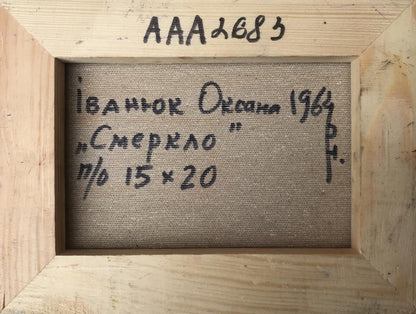 AAA2683
Іванюк Оксана 1964 р.н.
„Смеркло"
п/о 15×20